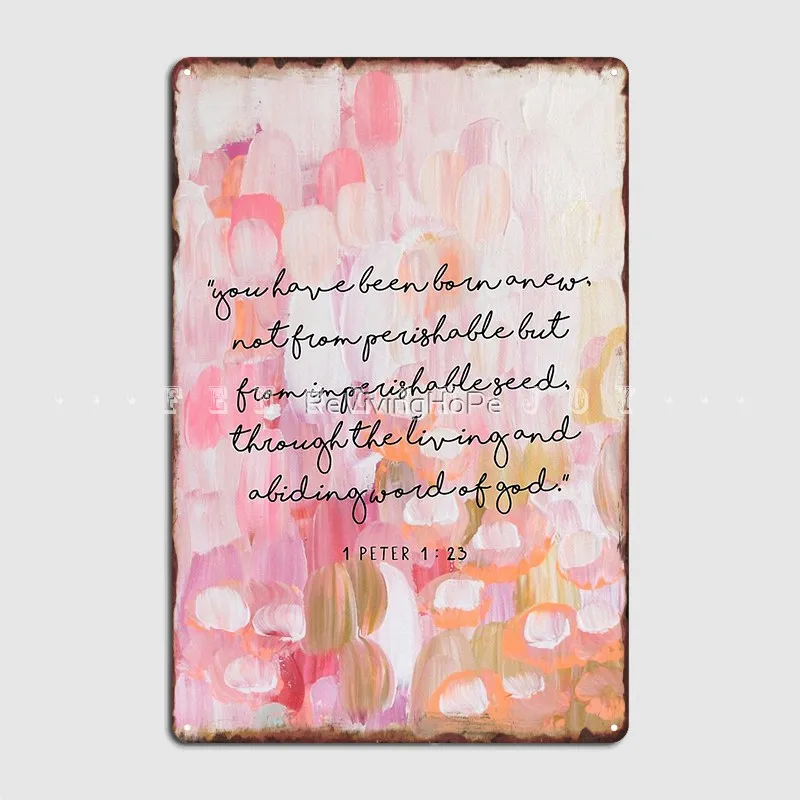 "you have been born anew,
not from perishable but
from imperishable seed,
RevivingHoPe
through the living and
abiding word of god."
1 PETER 1:23